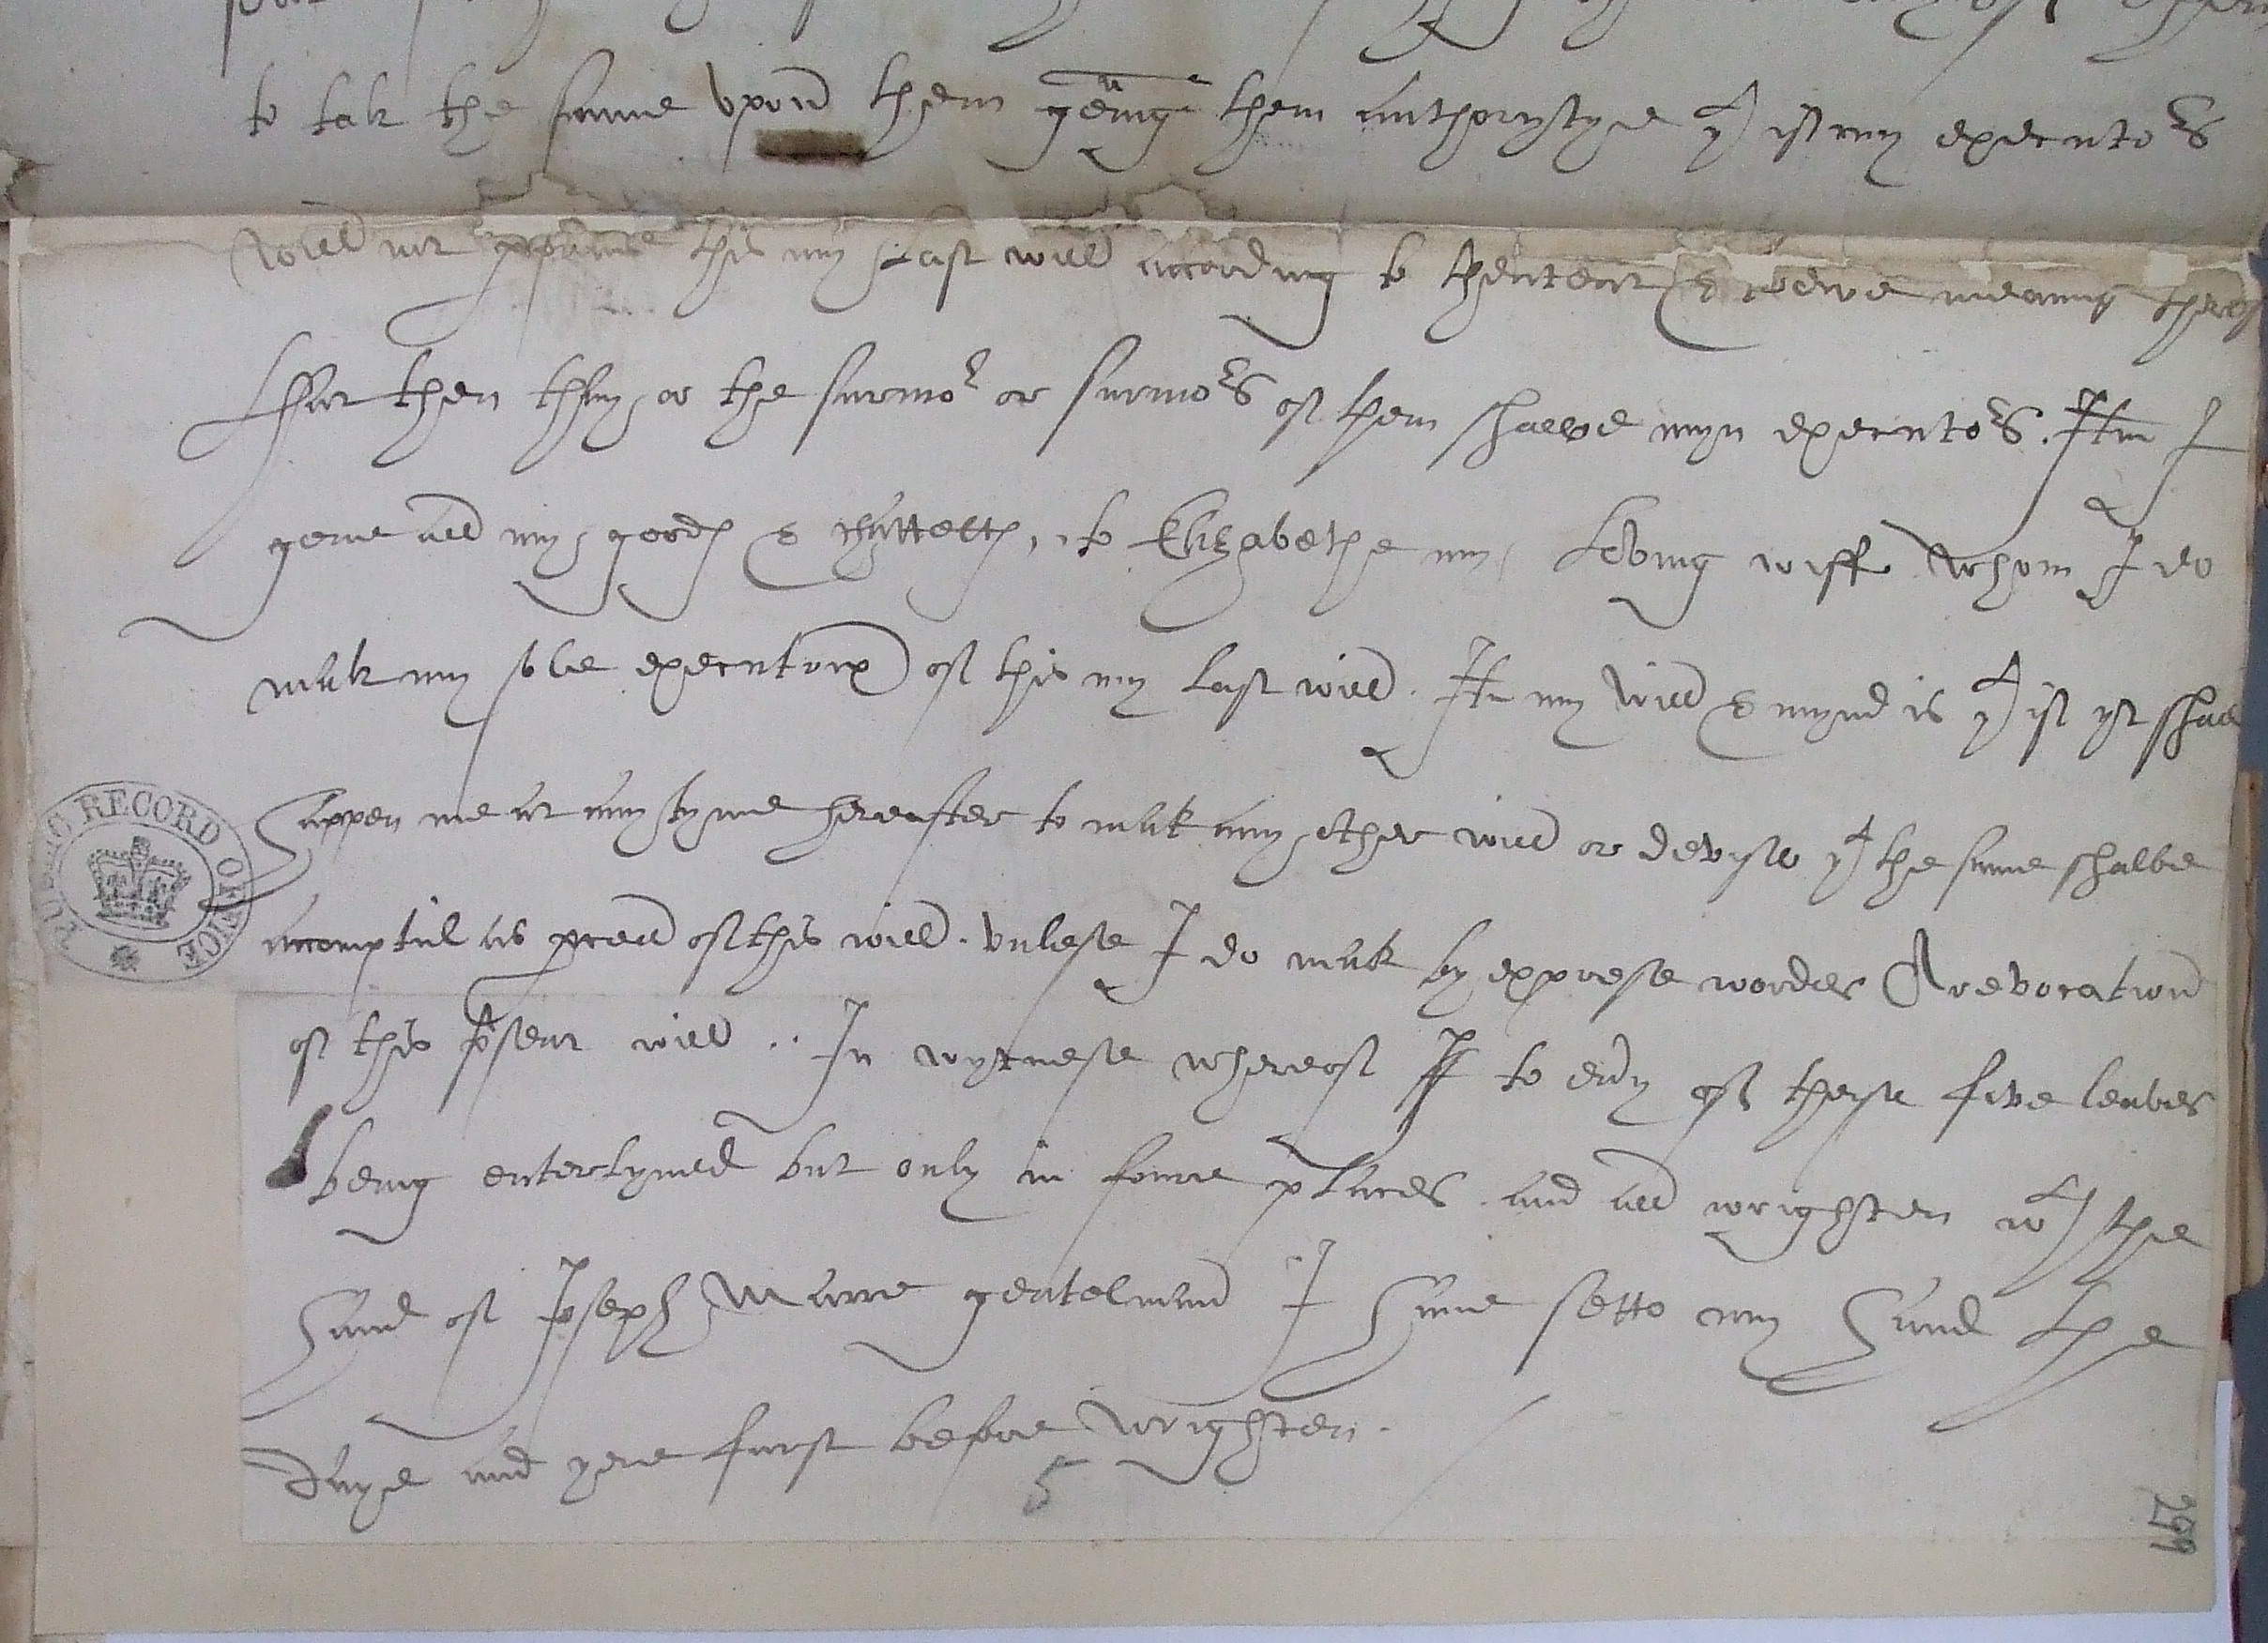 to tak the same vpon them geving them authorytye yt if my executors
will not performe this my last will according to thentent & trewe meaning therof
That then they or the survivor or survivors of them shalbe myn executors. Itm I
geve all my goods & chattells, to Elizabethe my Loving wiff whom I do
mak my sole executrix of this my last will. Itm my will & mynd is yt if yt shall
happen me at any tyme hereafter to mak any other will or devise yt the same shalbe
accomptid as parcell of this will. vnlesse I do mak by expresse wordes A revocation
of this psent will .. In wytnesse whereof I to evry of these five leaves
being enterlyned but only in foure places and all wrighten wt the
hand of Joseph Marre gentelman I have sette my hand the
daye and yere furst before wrighten.
5
299
PUBLIC RECORD OFFICE